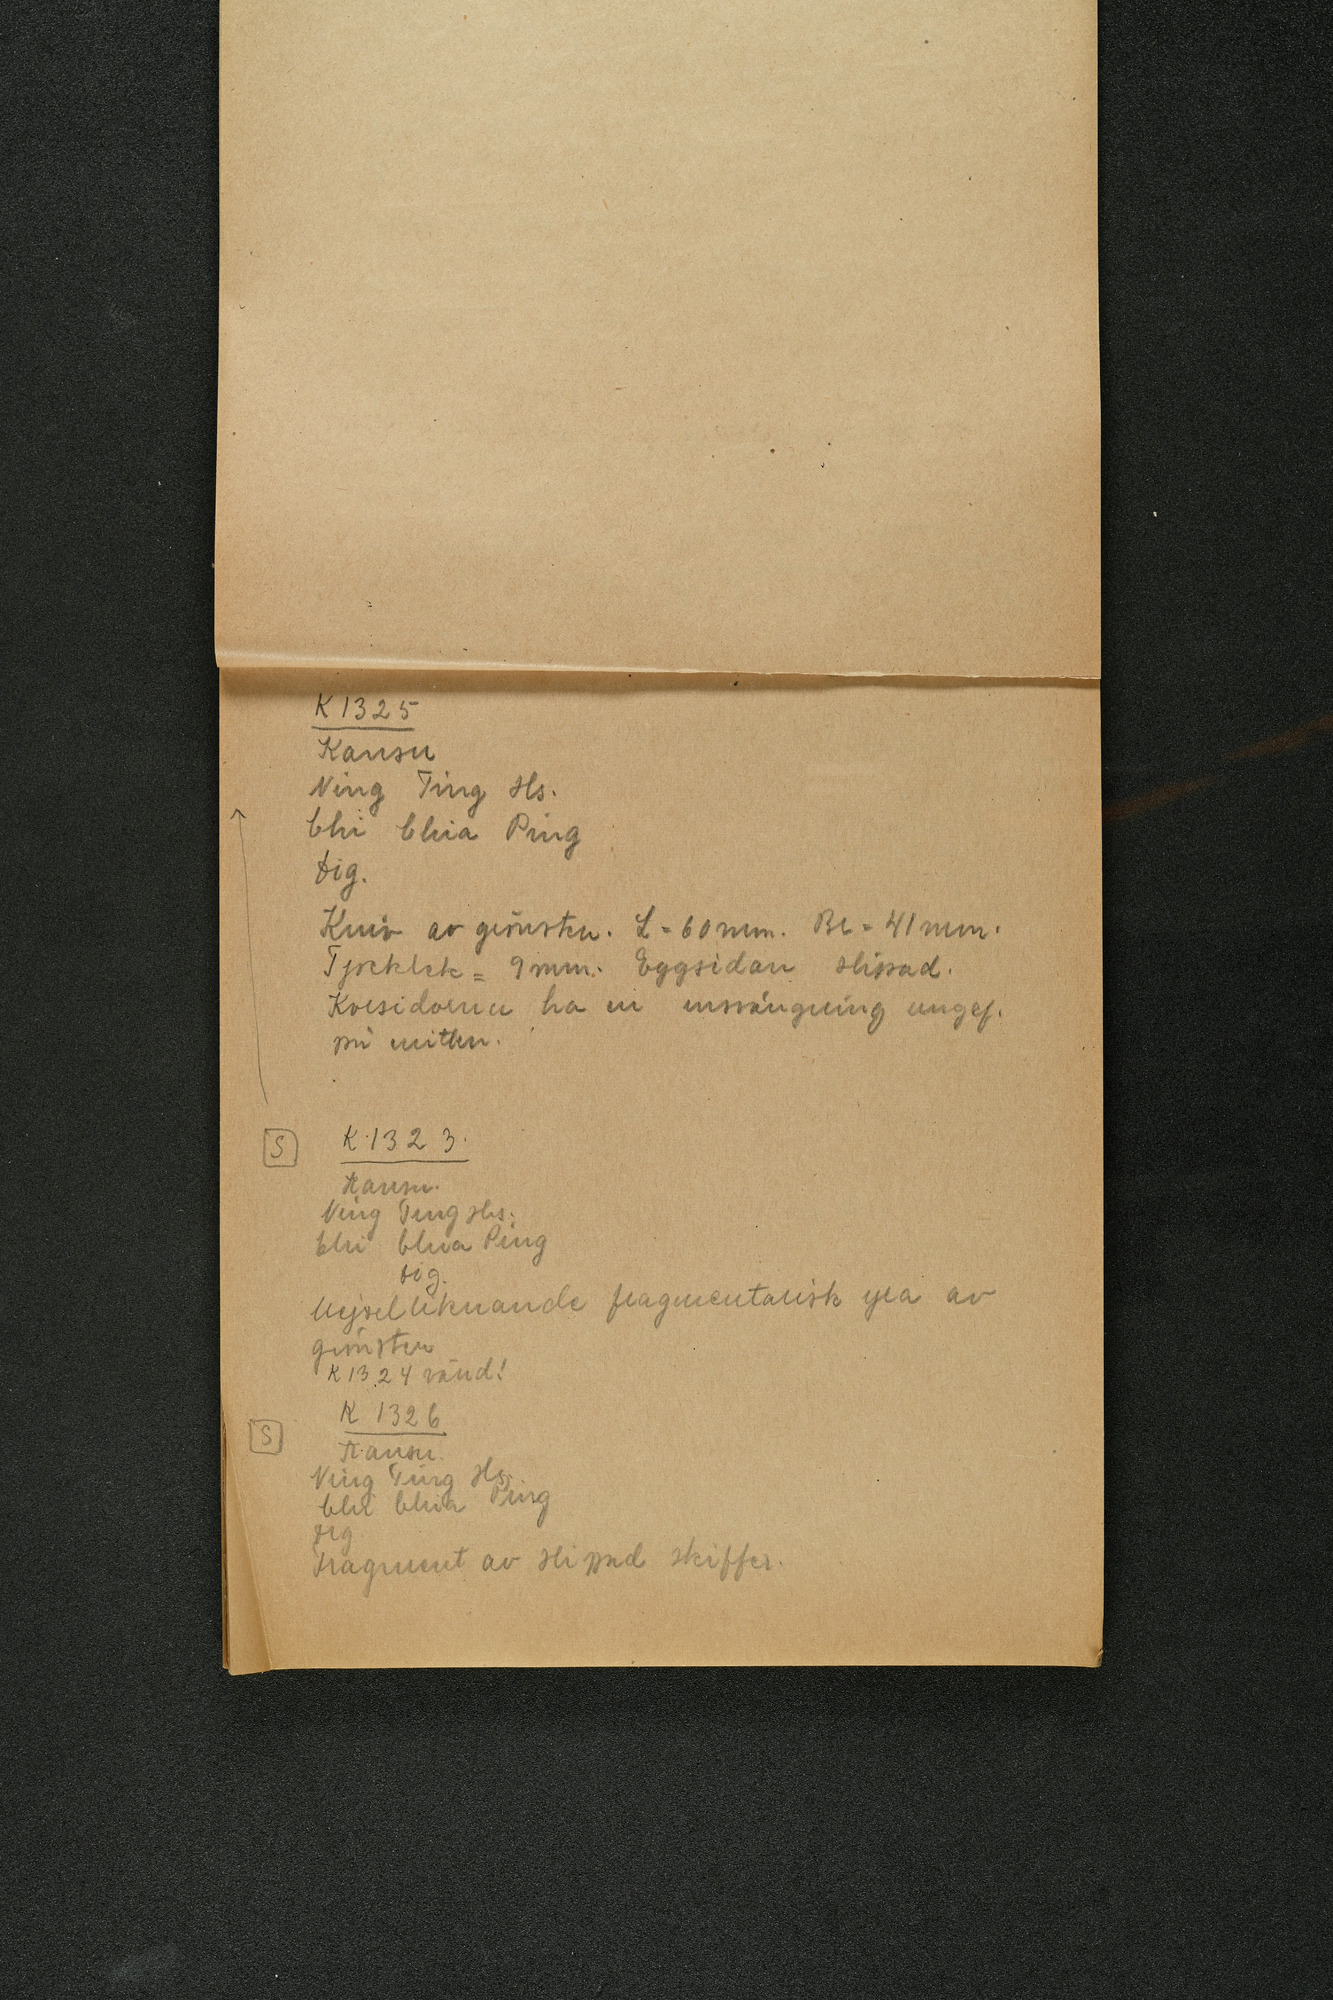 K 1325
Kansu
Ning Ting Hs.
Chi Chia Ping
tig.
Kniv av grönsten. L = 60 mm. Br = 41 mm.
Tjocklek = 9 mm. Eggsidan slipad.
Kortsidorna ha en insvängning ungef.
på mitten.
S K.1323.
Kansu.
Ning Ting Hs.
Chi Chia Ping
tig.
Mejselliknande fragmentarisk yxa av
grönsten
K 1324 vänd!
K 1326
S
Kansu.
Ning Ting Hs.
Chi Chia Ping
tig
Fragment av slipad skiffer.